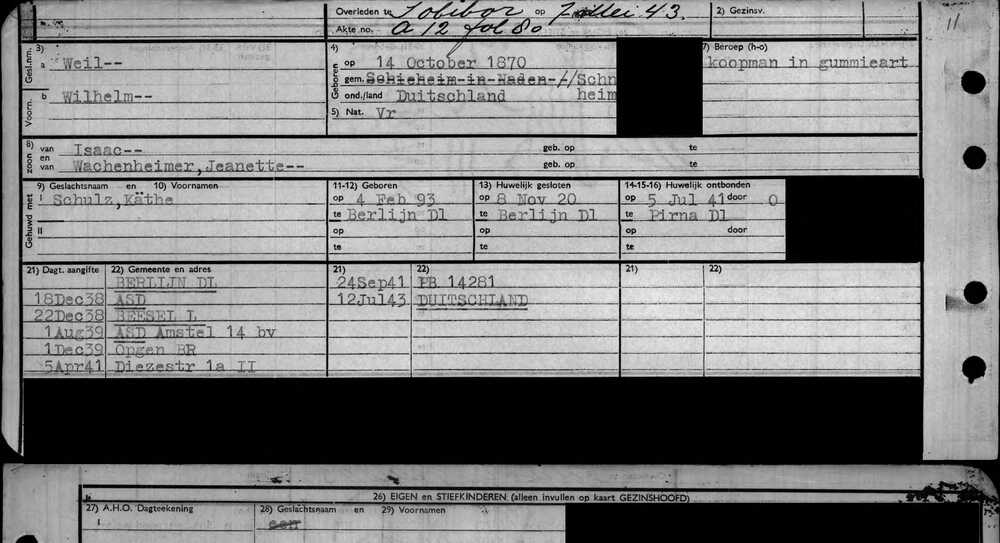 Overleden te Sobibor op 7 Mei 43. 2) Gezinsv. 11
Akte no. A 12 fol 80
3) 4) 7) Beroep (h-o)
Gesl.nm. a Weil-- Geboren op 14 October 1870 koopman in gummieart
gem. Schieheim-in-Naden-//Schn
Voorn. b Wilhelm-- ond./land Duitschland heim
5) Nat. Vr
8) zoon van Isaac-- geb. op te
en van Wachenheimer,Jeanette-- geb. op te
9) Geslachtsnaam en 10) Voornamen 11-12) Geboren 13) Huwelijk gesloten 14-15-16) Huwelijk ontbonden
Gehuwd met I Schulz,Käthe op 4 Feb 93 op 8 Nov 20 op 5 Jul 41 door O
te Berlijn Dl te Berlijn Dl te Pirna Dl
II op op op door
te te te
21) Dagt. aangifte 22) Gemeente en adres 21) 22) 21) 22)
BERLIJN DL 24Sep41 PB 14281
18Dec38 ASD 12Jul43 DUITSCHLAND
22Dec38 BEESEL L
1Aug39 ASD Amstel 14 bv
1Dec39 Opgen BR
5Apr41 Diezestr 1a II
26) EIGEN en STIEFKINDEREN (alleen invullen op kaart GEZINSHOOFD)
27) A.H.O. Dagteekening 28) Geslachtsnaam en 29) Voornamen